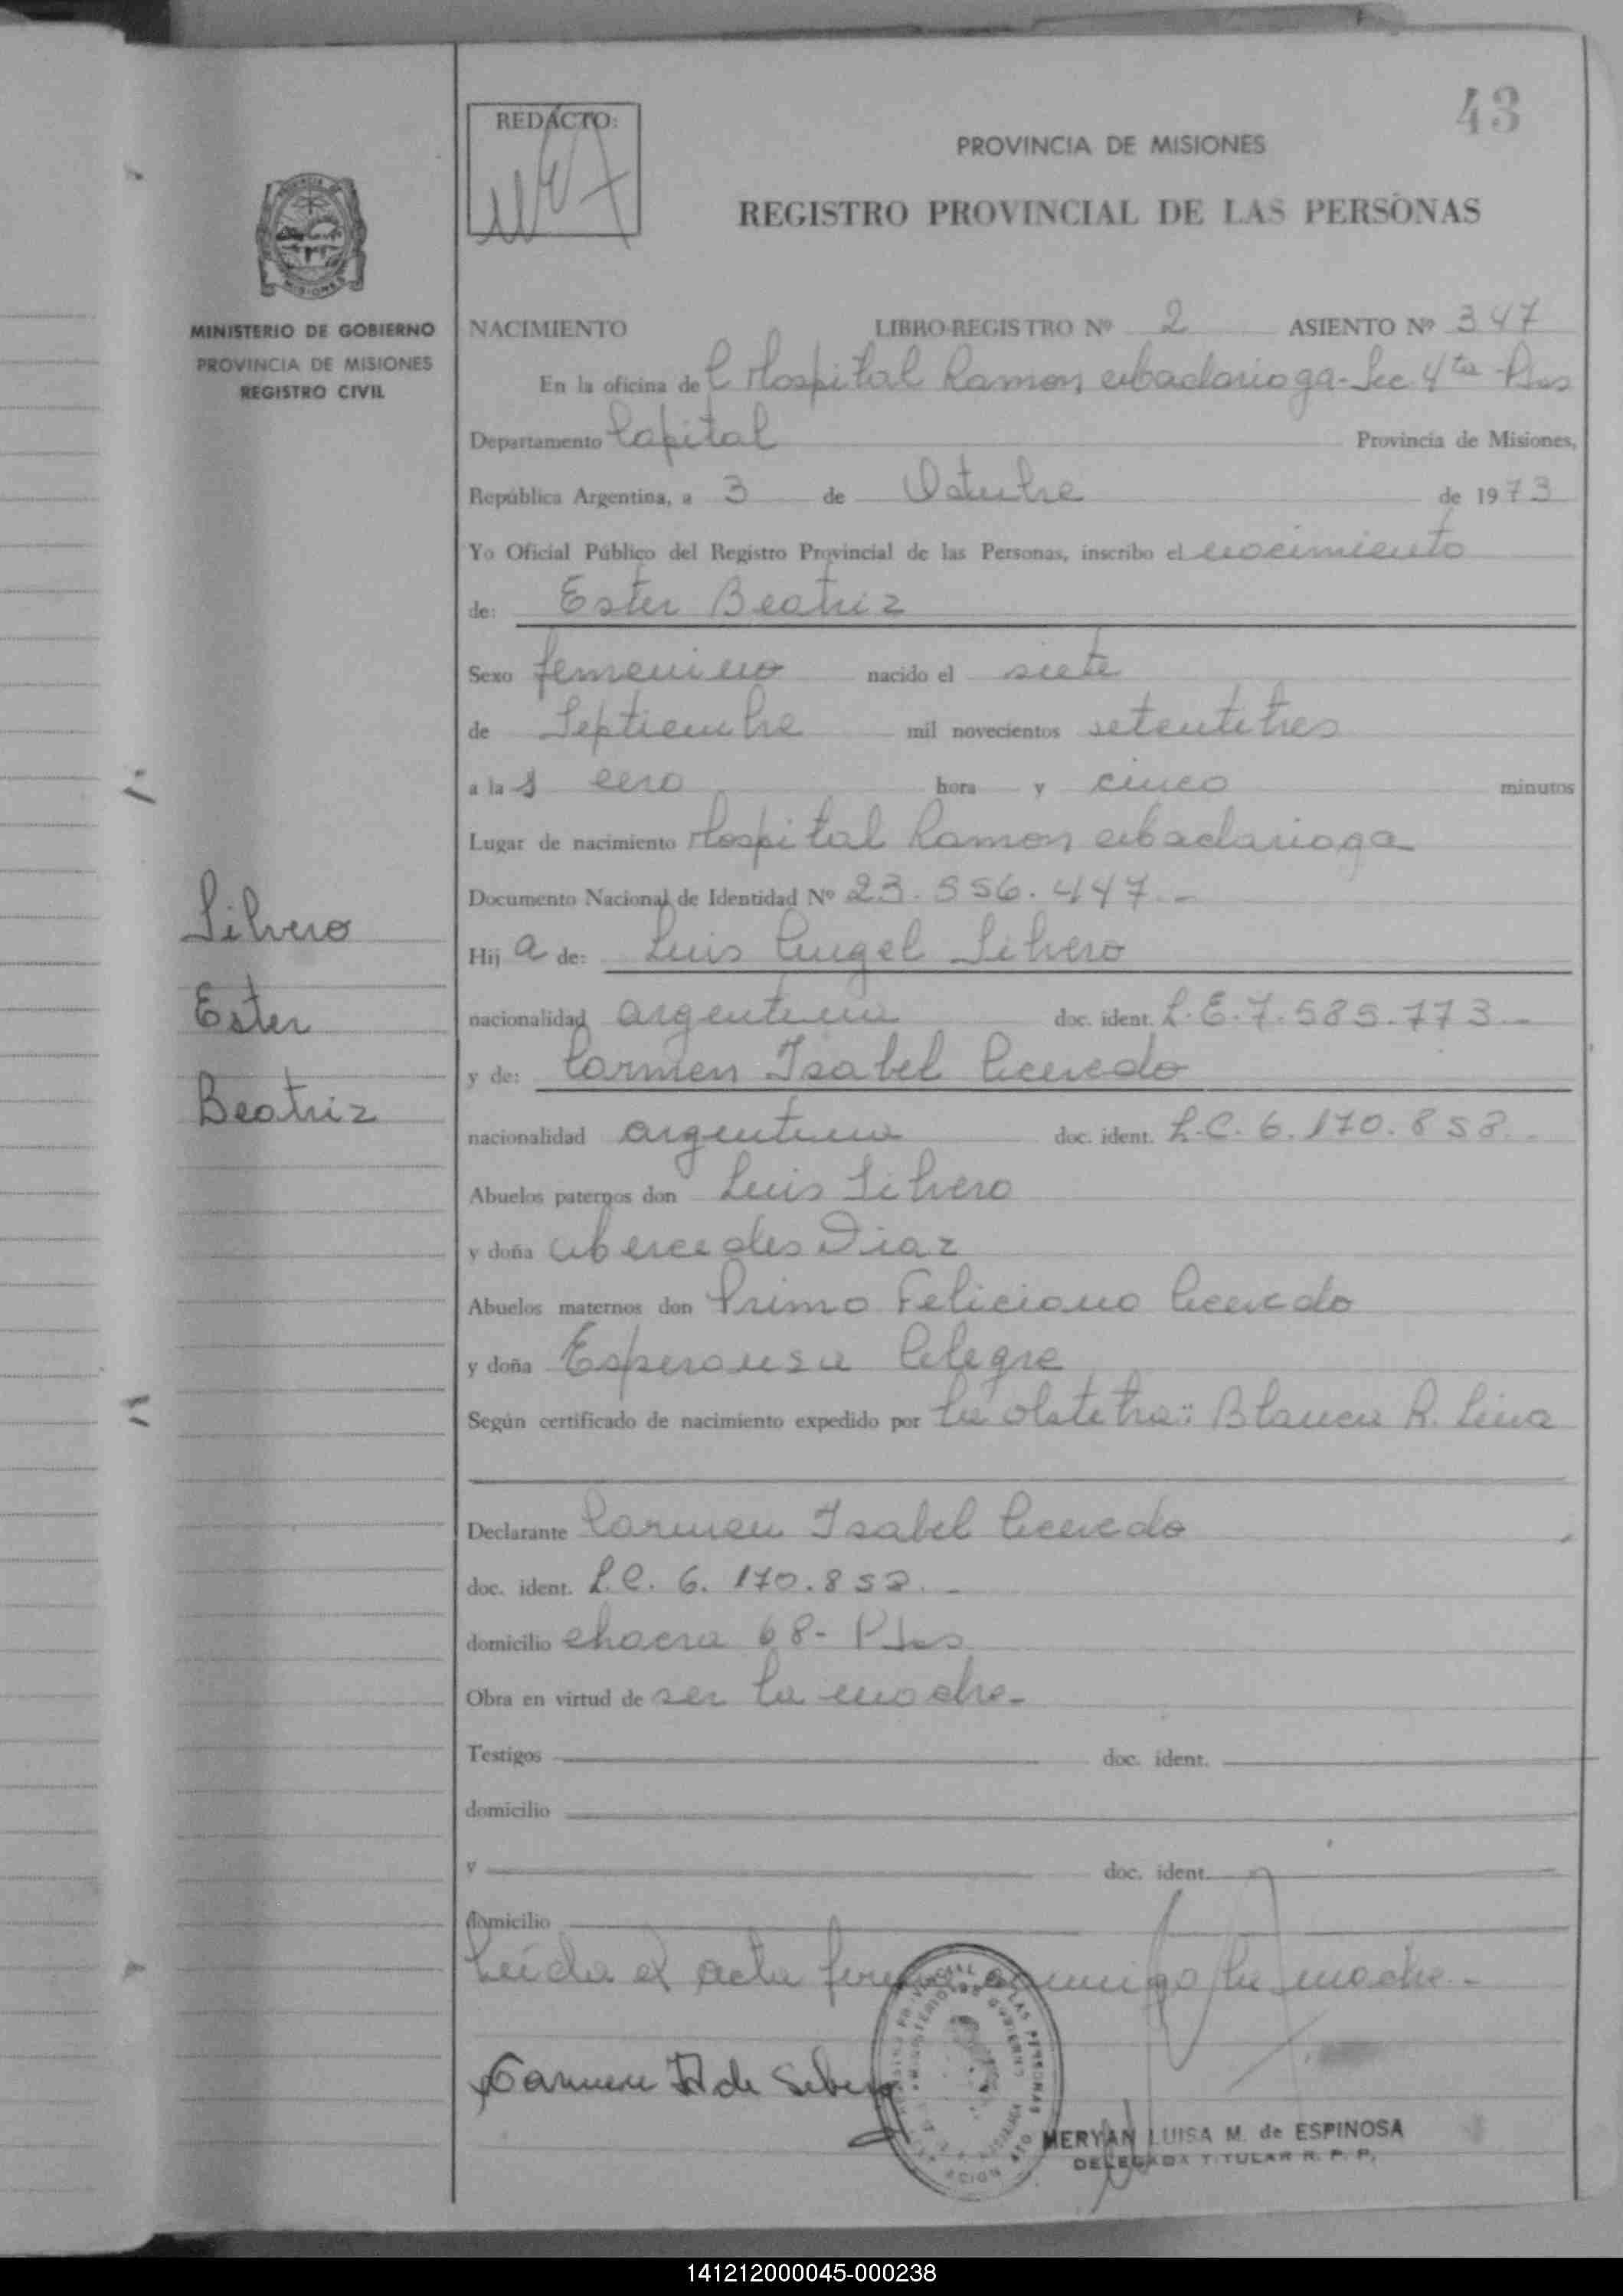 43
REDACTO:
PROVINCIA DE MISIONES
REGISTRO PROVINCIAL DE LAS PERSONAS
MINISTERIO DE GOBIERNO
PROVINCIA DE MISIONES
REGISTRO CIVIL
NACIMIENTO LIBRO-REGISTRO Nº 2 ASIENTO Nº 347
En la oficina del Hospital Ramon Madariaga - Sec 4ta - Pdas
Departamento Capital Provincia de Misiones,
República Argentina, a 3 de Octubre de 1973
Yo Oficial Público del Registro Provincial de las Personas, inscribo el nacimiento
de: Ester Beatriz
Sexo femenino nacido el siete
de Septiembre mil novecientos setentitres
a las cero hora y cinco minutos
Lugar de nacimiento Hospital Ramon Madariaga
Documento Nacional de Identidad Nº 23.556.447.-
Silvero
Ester
Beatriz
Hija de: Luis Angel Silvero
nacionalidad argentina doc. ident. L.E. 7.585.773.-
y de: Carmen Isabel Acevedo
nacionalidad argentina doc. ident. L.C. 6.170.852.-
Abuelos paternos don Luis Silvero
y doña Mercedes Diaz
Abuelos maternos don Primo Feliciano Acevedo
y doña Esperansa Alegre
Según certificado de nacimiento expedido por la obstetra: Blanca R.
Declarante Carmen Isabel Acevedo
doc. ident. L.C. 6.170.852.-
domicilio chacra 68- Pdas
Obra en virtud de ser la madre-
Testigos doc. ident.
domicilio
y doc. ident.
domicilio
Leída el acta firma conmigo la madre.-
Carmen A de Silvero
MERYAN LUISA M. de ESPINOSA
DELEGADA TITULAR R. P. P.
141212000045-000238